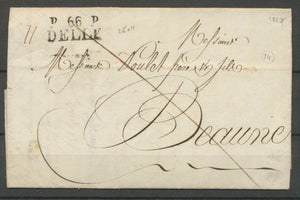 P 66 P
DELLE
Messieurs
Messieurs Poulet père & fils
Beaune